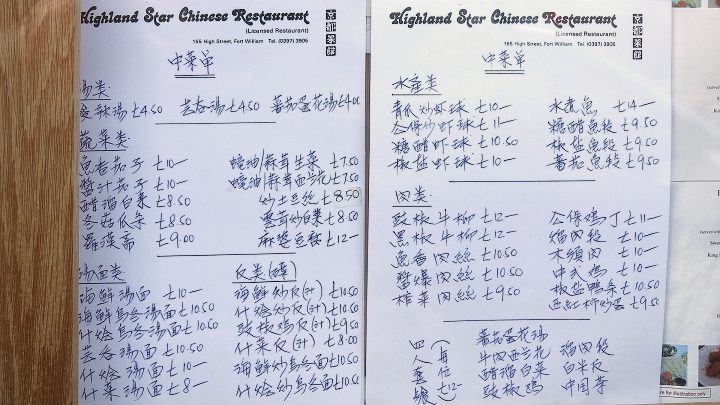 Highland Star Chinese Restaurant
(Licensed Restaurant)
155 High Street, Fort William Tel. (0397) 3905
京都菜館
中菜单
汤类
£4.50
芸吞湯 £4.50
蕃茄蛋花湯 £4.00
蔬菜类
魚香茄子 £10—
醬汁茄子 £10—
醋溜白菜 £8.50
冬菇瓜条 £8.50
羅漢斋 £9.00
蠔油/蒜茸生菜 £7.50
蠔油/蒜茸西兰花 £7.50
炒土豆丝 £8.50
雲茸炒白菜 £8.50
麻婆豆腐 £12—
汤面类
海鮮湯面 £10—
海鮮乌冬湯面 £10.50
什烩乌冬湯面 £10.50
芸吞湯面 £10.50
什烩湯面 £10—
什菜湯面 £8—
反类
海鮮炒反(汁) £10.50
什烩炒反(汁) £10.50
豉椒鸡反(汁) £9.50
什菜反(汁) £8.00
海鮮炒乌冬面 £10.50
什烩炒乌冬面 £10.50
Highland Star Chinese Restaurant
(Licensed Restaurant)
155 High Street, Fort William Tel. (0397) 3905
京都菜館
中菜单
水産类
青瓜炒虾球 £10—
公保炒虾球 £11—
糖醋虾球 £10.50
椒盐虾球 £10—
水煮魚 £14—
糖醋魚段 £9.50
椒盐魚段 £9.50
蕃茄魚段 £9.50
肉类
豉椒牛柳 £12—
黑椒牛柳 £12—
魚香肉絲 £10.50
醬爆肉絲 £10.50
榨菜肉絲 £9.50
公保鸡丁 £11—
溜肉段 £10—
木须肉 £10—
中式鸡 £10—
椒盐鸭 £10.50
西红柿炒蛋 £9.50
四人套餐
(每位£12—)
蕃茄蛋花湯
牛肉西兰花 溜肉段
醋溜白菜 白米反
豉椒鸡 中国茶
for illustration only